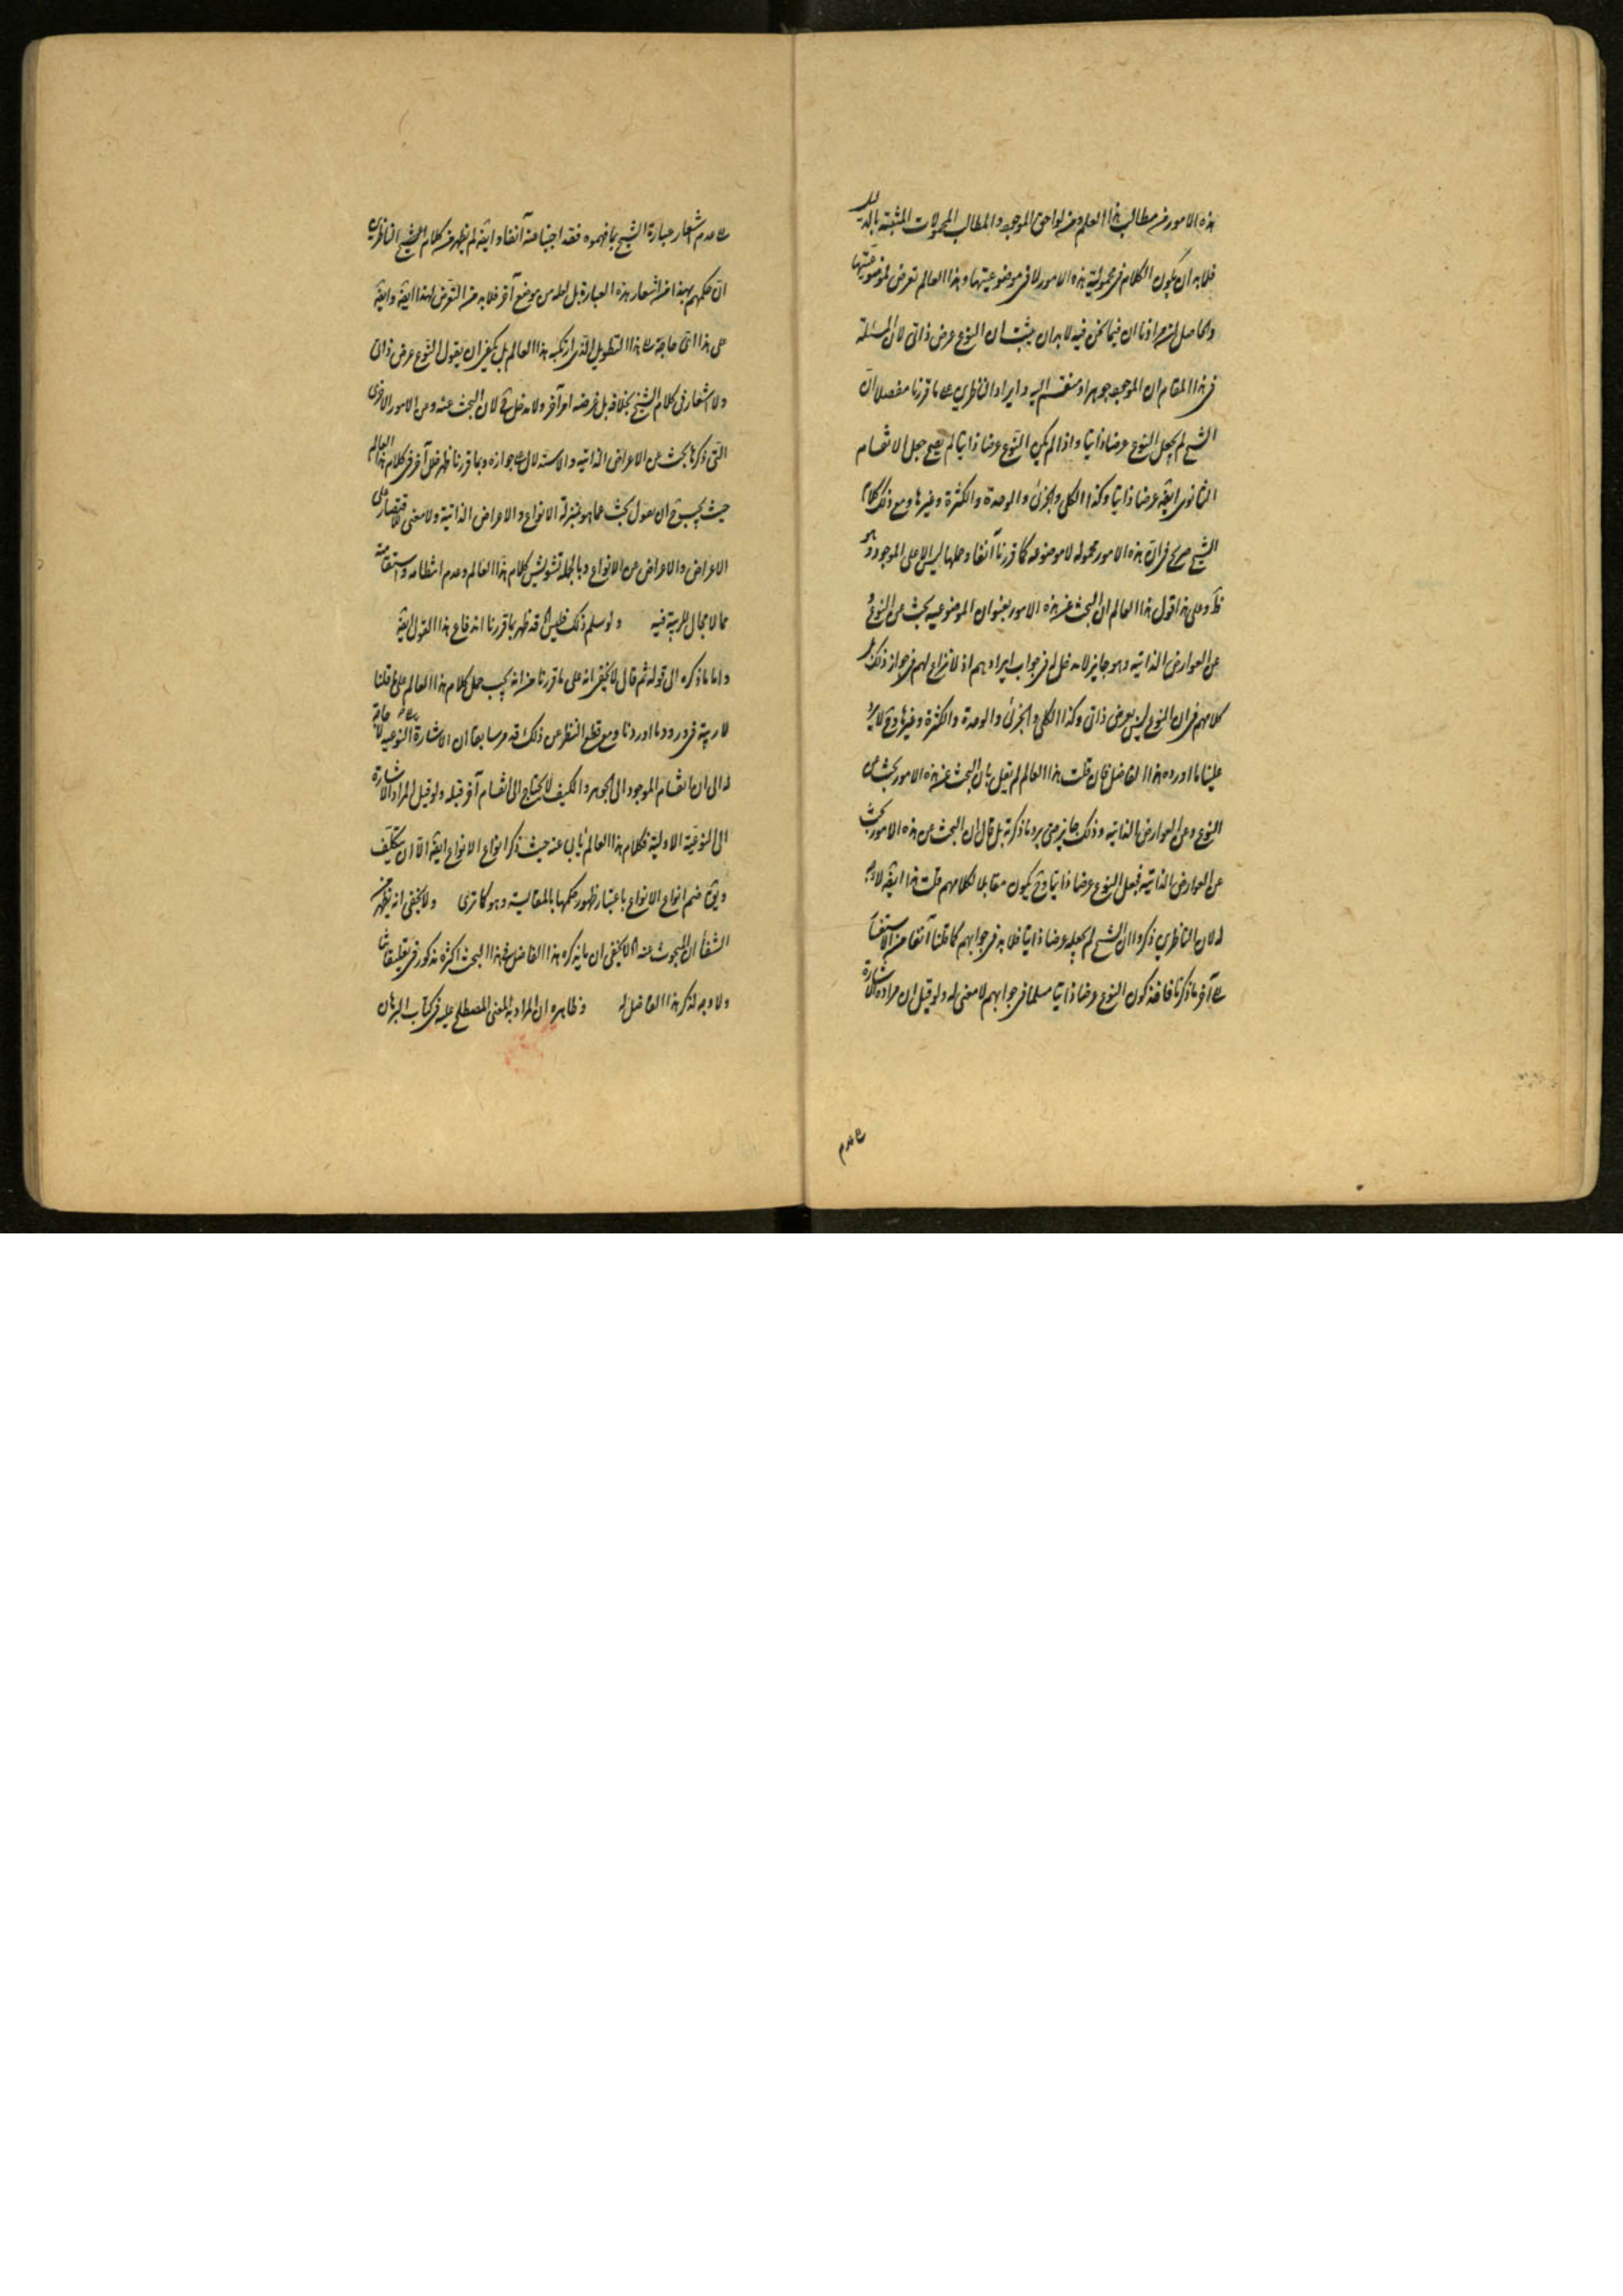 هذه الامور من مطالب هذا العلم ومن لواحق الموجود والمطالب المحمولات المثبتة بالدليل
فلابد ان يكون الكلام في محمولية هذه الامور لا في موضوعيتها وهذا العالم تعرض لموضوعيتها
والحاصل ان مرادنا ان فيما نحن فيه لابد ان يثبت ان النوع عرض ذاتي لان المسئلة
في هذا المقام ان الموجود جوهر او منقسم اليه وايراد الناظرين على ما قررنا مفصلا ان
الشيخ لم يجعل النوع عرضا ذاتيا واذا لم يكن النوع عرضا ذاتيا لم يصح جعل الانقسام
الثانوي ايضه عرضا ذاتيا وكذا الكلي والجزئي والوحدة والكثرة وغيرها ومع ذلك كلام
الشيخ صريح في ان هذه الامور محمولة لا موضوعة كما قررنا آنفا وحملها ليس الا على الموجود وهو
ظ وعلى هذا قول هذا العالم ان البحث عن هذه الامور بعنوان الموضوعية بحث عن النوع و
عن العوارض الذاتية وهو جايز لا دخل له في جواب ايرادهم اذ لا نزاع لهم في جواز ذلك بل
كلامهم في ان النوع ليس بعرض ذاتي وكذا الكلي والجزئي والوحدة والكثرة وغيرها وح لا يرد
علينا ما اورده هذا الفاضل فان قلت هذا العالم لم يقل بان البحث عن هذه الامور بحث عن
النوع وعن العوارض الذاتية وذلك جايز حتى يرد ما ذكرته بل قال ان البحث عن هذه الامور بحث
عن العوارض الذاتية فجعل النوع عرضا ذاتيا وح يكون مقابلا لكلامهم قلت هذا ايضه لا وجه
له لان الناظرين ذكروا ان الشيخ لم يجعله عرضا ذاتيا فلابد في جوابهم كما قلنا آنفا من الاستغناء
آخر ما ذكرنا فاخذ كون النوع عرضا ذاتيا مسلما في جوابهم لا معنى له ولو قيل ان مراده الاشارة
على عدم
على عدم اشعار عبارة الشيخ بما فهموه فقد اجبنا عنه آنفا وايضه لم يظهر من كلام الشيخ الناظرين
ان حكمهم بهذا من اشعار هذه العبارة بل لعله من موضع آخر فلابد من التعرض لهذا ايضه وايضه
على هذا اي حاجة الى هذا التطويل الذي ارتكبه هذا العالم بل يكفي ان يقول النوع عرض ذاتي
ولا اشعار في كلام الشيخ بخلافه بل غرضه امر آخر ولا دخل لان البحث عنه ومن الامور الاخرى
التي ذكرها بحث عن الاعراض الذاتية والاستدلال على جوازه وبما قررنا ظهر خلل آخر في كلام هذا العالم
حيث يجب ح ان يقول بحث عما هو بمنزلة الانواع والاعراض الذاتية ولا معنى للاقتصار على
الاعراض والاعراض عن الانواع وبالجملة تشويش كلام هذا العالم وعدم انتظامه واستقامته
مما لا مجال للريبة فيه ولو سلم ذلك قد ظهر بما قررنا اندفاع هذا القول ايضه
واما ما ذكره الى قوله ثم قال لا يخفى انه على ما قررنا من انه يجب حمل كلام هذا العالم على ما قلنا
لا ريبة في ورود ما اوردنا ومع قطع النظر عن ذلك قد مر سابقا ان الاشارة النوعية لا حاجة
له الى ان انقسام الموجود الى الجوهر والكيف لا يحتاج الى انقسام آخر قبله ولو قيل المراد الاشارة
الى النوعية الاولية فكلام هذا العالم يأبى عنه حيث ذكر انواع الانواع ايضه الا ان يتكلف
ويقال ضم انواع الانواع باعتبار ظهور حكمها بالمقايسة وهو كما ترى ولا يخفى انه يظهر من
الشفاء ان المبحوث عنه لا يخفى ان ما يذكره هذا الفاضل في هذا البحث اكثره مذكور في تعليقاتنا
ولا وجه لذكر هذا الفاضل له وظاهره ان المراد به المعنى المصطلح عليه في كتاب البرهان